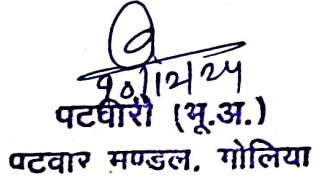 पटवारी (भू.अ.)
पटवार मण्डल, गोलिया